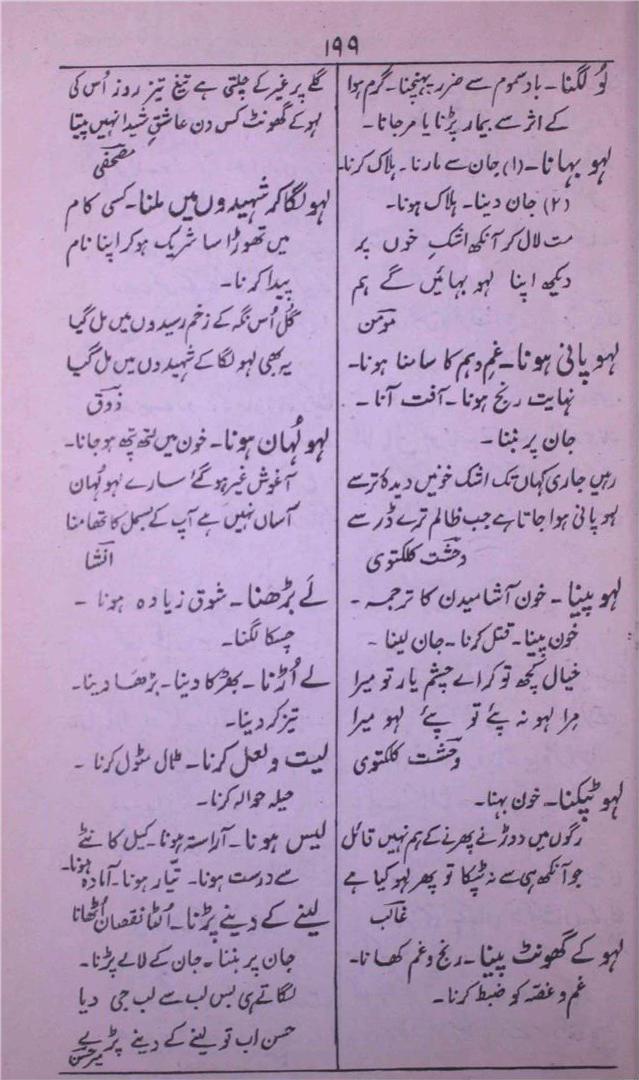 ۱۹۹
لُو لگنا۔ بادسموم سے ضرر پہنچنا۔ گرم ہوا
کے اثر سے بیمار پڑنا یا مرجانا۔
لہو بہانا۔ (۱) جان سے مارنا۔ ہلاک کرنا۔
(۲) جان دینا۔ ہلاک ہونا۔
مت لال کر آنکھ اشکِ خوں پر
دیکھ اپنا لہو بہائیں گے ہم
مومنؔ
لہو پانی ہونا۔ غم وہم کا سامنا ہونا۔
نہایت رنج ہونا۔ آفت آنا۔
جان پر بننا۔
رہیں جاری کہاں تک اشک خونیں دیدۂ تر سے
لہو پانی ہوا جاتا ہے جب ظالم ترے ڈر سے
وحشتؔ کلکتوی
لہو پینا۔ خون آشامیدن کا ترجمہ۔
خون پینا۔ قتل کرنا۔ جان لینا۔
خیال کچھ تو کر اے چشم یار تو میرا
مرا لہو نہ پئے تو پئے لہو میرا
وحشتؔ کلکتوی
لہو ٹپکنا۔ خون بہنا۔
رگوں میں دوڑنے پھرنے کے ہم نہیں قائل
جو آنکھ ہی سے نہ ٹپکا تو پھر لہو کیا ہے
غالبؔ
لہو کے گھونٹ پینا۔ رنج و غم کھانا۔
غم و غصہ کو ضبط کرنا۔
گلے پر غیر کے چلتی ہے تیغ تیز روز اُس کی
لہو کے گھونٹ کس دن عاشقِ شیدا نہیں پیتا
مصحفیؔ
لہو لگا کر شہیدوں میں ملنا۔ کسی کام
میں تھوڑا سا شریک ہوکر اپنا نام
پیدا کرنا۔
گُل اُس نگہ کے زخم رسیدوں میں مل گیا
یہ بھی لہو لگا کے شہیدوں میں مل گیا
ذوقؔ
لہو لُہان ہونا۔ خون میں لتھ پتھ ہوجانا۔
آغوش غیر ہوگئے سارے لہو لُہان
آساں نہیں ہے آپ کے بسمل کا تھامنا
انشاؔ
لَے بڑھنا۔ شوق زیادہ ہونا۔
چسکا لگنا۔
لے اُڑنا۔ بھڑکا دینا۔ بڑھا دینا۔
تیز کردینا۔
لیت و لعل کرنا۔ ٹال مٹول کرنا۔
حیلہ حوالہ کرنا۔
لیس ہونا۔ آراستہ ہونا۔ کیل کانٹے
سے درست ہونا۔ تیّار ہونا۔ آمادہ ہونا۔
لینے کے دینے پڑنا۔ اُلٹا نقصان اُٹھانا
جان پر بننا۔ جان کے لالے پڑنا۔
لگاتے ہی بس لب سے لب جی دیا
حسن اب تو لینے کے دینے پڑے
میر حسنؔ